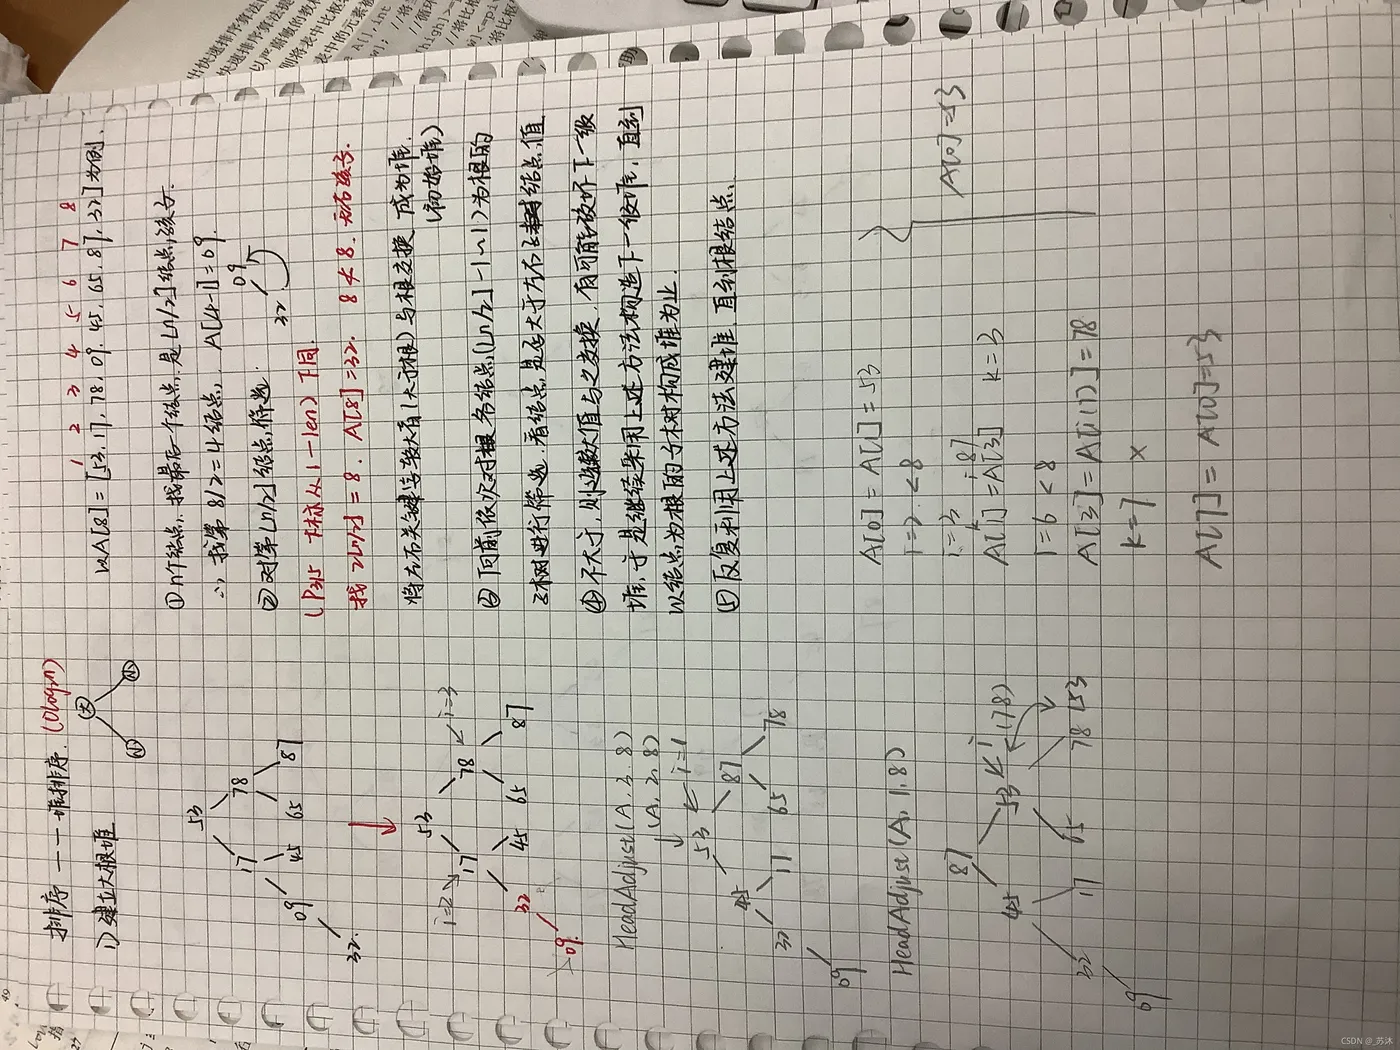 排序 —— 堆排序. (Ologn)
1) 建立大根堆
大
小 小
53
17 78
09 45 65 87
32
53
i=2 17 78 i=3
32 45 65 87
09
HeadAdjust(A, 3, 8)
(A, 2, 8)
53 i=1
45 87
32 17 65 78
09
HeadAdjust(A, 1, 8)
87
45 53 i (78)
32 17 65 78 (53
09
1 2 3 4 5 6 7 8
以A[8] = [53, 17, 78, 09, 45, 65, 87, 32]为例.
①n个结点, 找最后一个结点, 是⌊n/2⌋结点孩子.
∴ 找第8/2=4结点, A[4-1]=09.
②对第⌊n/2⌋结点筛选.
09
32
(P315 下标从1-len) 下同.
找 2⌊n/2⌋=8. A[8]=32. 8≮8. 无右孩子.
将左右关键字较大者(大于根)与根交换 成为堆.
(初始堆)
③向前依次对根各结点(⌊n/2⌋-1~1)为根的
子树进行筛选, 看结点是否大于左右子树结点值
④不大于, 则将最大值与之交换, 有可能破坏下一级
堆, 于是继续采用上述方法构造下一级堆, 直到
以结点为根的子树构成堆为止.
⑤反复利用上述方法建堆, 直到根结点.
A[0] = A[1] = 53
i=2 < 8
i=3
A[1]=A[3] k=3
i=6 < 8
A[3]=A[i(7)]=78
k=7 ×
A[0]=53
A[7] = A[0]=53
CSDN @_苏沐